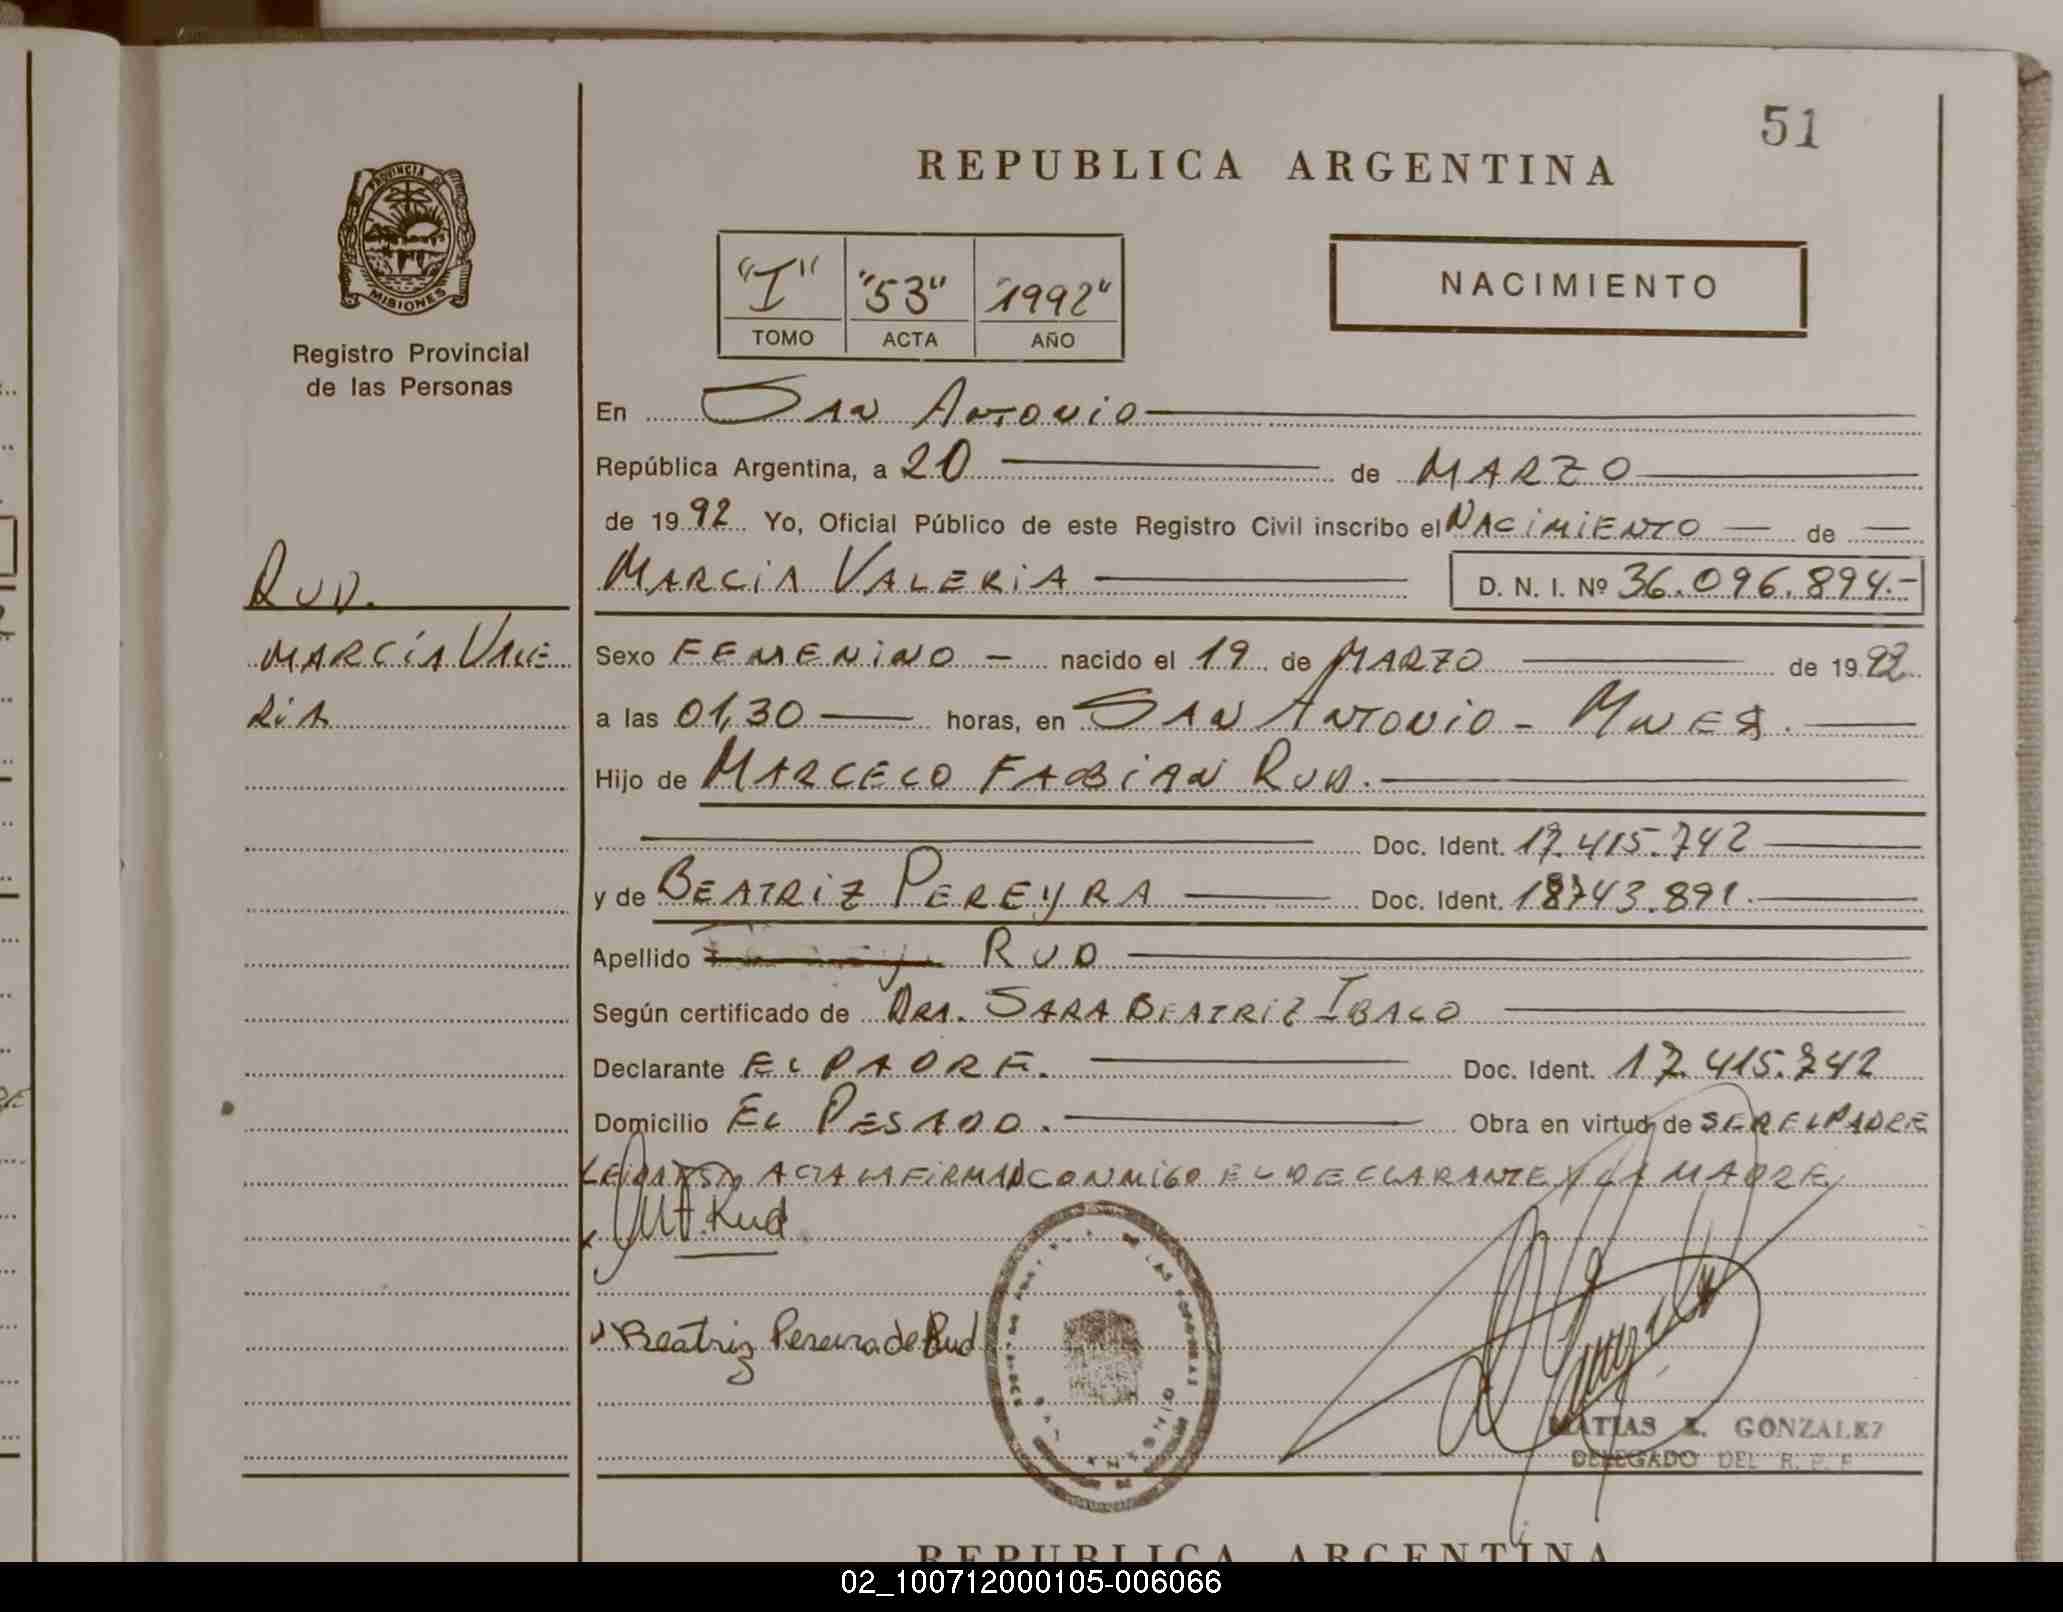 51
REPUBLICA ARGENTINA
PROVINCIA DE
MISIONES
Registro Provincial
de las Personas
"I" "53" "1992"
TOMO ACTA AÑO
NACIMIENTO
En San Antonio
República Argentina, a 20 de MARZO
de 1992 Yo, Oficial Público de este Registro Civil inscribo el NACIMIENTO de
MARCIA VALERIA D. N. I. Nº 36.096.894.-
RUD.
MARCÍA VALE
RIA
Sexo FEMENINO - nacido el 19 de MARZO de 1992
a las 01,30 horas, en SAN ANTONIO - MNES.
Hijo de MARCELO FABIAN RUD.
Doc. Ident. 17.415.742
y de BEATRIZ PEREYRA Doc. Ident. 18743.891.
Apellido RUD
Según certificado de DRA. SARA BEATRIZ IBALO
Declarante EL PADRE. Doc. Ident. 17.415.742
Domicilio EL PESADO. Obra en virtud de SER EL PADRE
LEIDA ESTA ACTA LA FIRMAN CONMIGO EL DECLARANTE Y LA MADRE
M.F. Rud
Beatriz Pereira de Rud
MATIAS R. GONZALEZ
DELEGADO DEL R. P. P.
REPUBLICA ARGENTINA
02_100712000105-006066